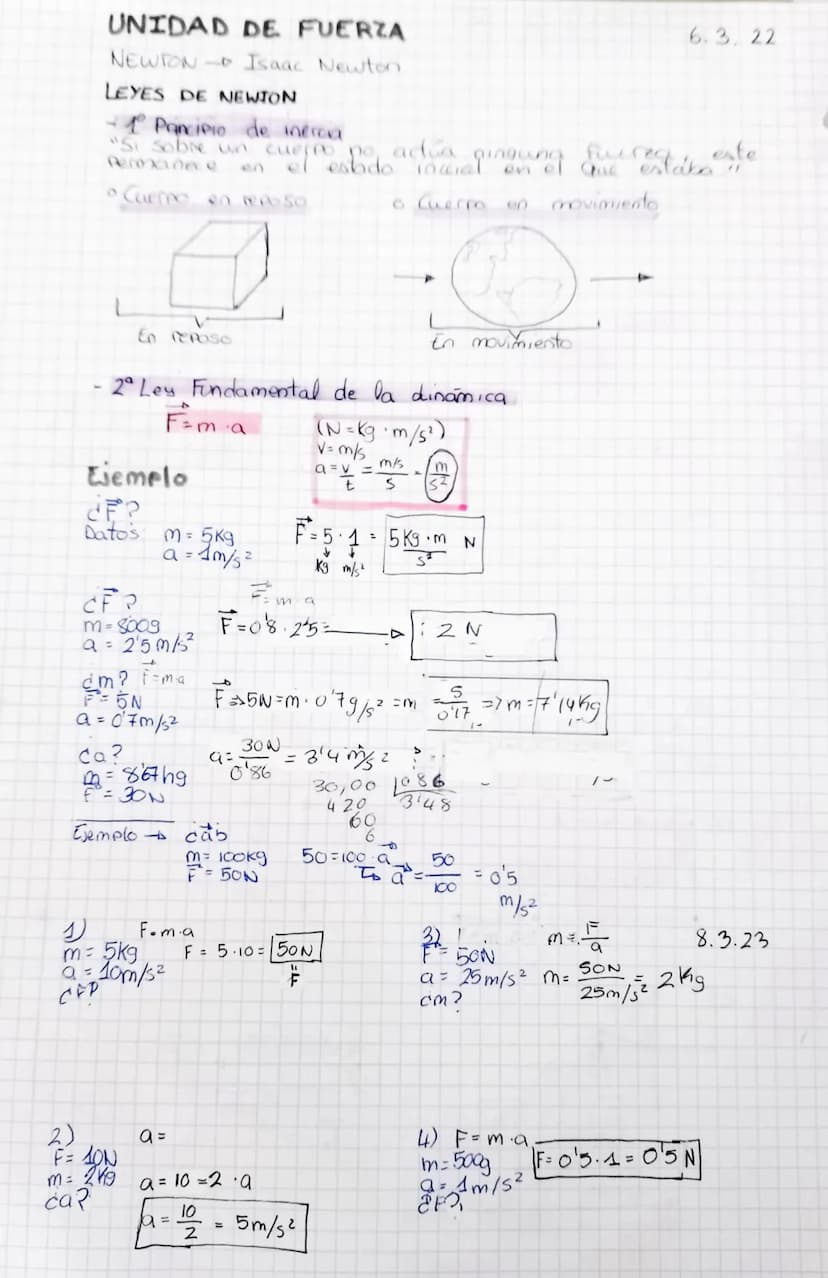 UNIDAD DE FUERZA
6. 3. 22
NEWTON → Isaac Newton
LEYES DE NEWTON
- 1º Principio de inercia
"Si sobre un cuerpo no actúa ninguna fuerza, este
permanece en el estado inicial en el que estaba"
o Cuerpo en reposo
o Cuerpo en movimiento
En reposo
En movimiento
- 2ª Ley Fundamental de la dinámica
F = m · a
(N = Kg · m/s²)
V = m/s
a = v/t = m/s / s = m/s²
Ejemplo
¿F?
Datos m = 5Kg
a = 1m/s²
F = 5 · 1 = 5Kg · m / s² N
Kg m/s²
¿F?
F = m · a
m = 800g
a = 2'5 m/s²
F = 0'8 · 2'5 = → : 2 N
¿m? F = m · a
F = 5N
a = 0'7m/s²
F → 5N = m · 0'7g/s² = m = 5 / 0'17 => m = 7'14Kg
¿a?
m = 867hg
F = 30N
a = 30N / 0'86 = 3'4 m/s²
30,00 | 086
420 3'48
60
6
Ejemplo → ¿a?
m = 100Kg
F = 50N
50 = 100 · a
↳ a = 50 / 100 = 0'5
m/s²
1) F = m · a
m = 5Kg
a = 10m/s²
¿F?
F = 5 · 10 = 50N
F
3)
F = 50N
a = 25 m/s²
¿m?
m = F / a
m = 50N / 25m/s² = 2Kg
8. 3. 23
2) a =
F = 10N
m = 2Kg
¿a?
a = 10 = 2 · a
a = 10 / 2 = 5m/s²
4) F = m · a
m = 500g
a = 1m/s²
¿F?
F = 0'5 · 1 = 0'5 N